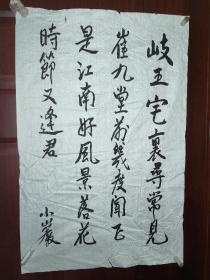 岐王宅裏尋常見
崔九堂前幾度聞正
是江南好風景落花
時節又逢君
小巖